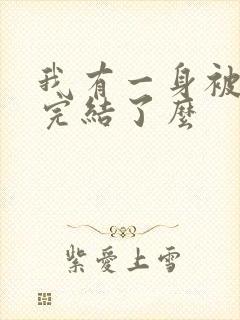 我有一身被
完結了麼
紫愛上雪